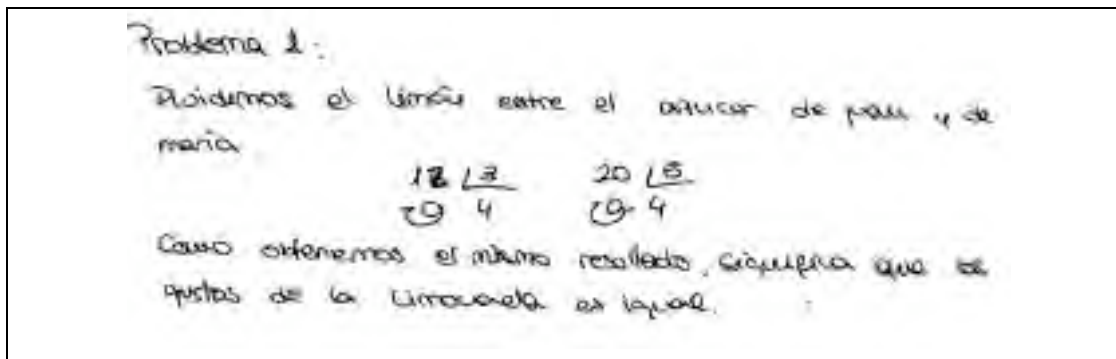 Problema 1:
Dividimos el limón entre el azucar de pau y de
maria
12 | 3 20 | 5
0 4 0 4
Como obtenemos el mismo resultado, significa que los
gustos de la limonada es igual.